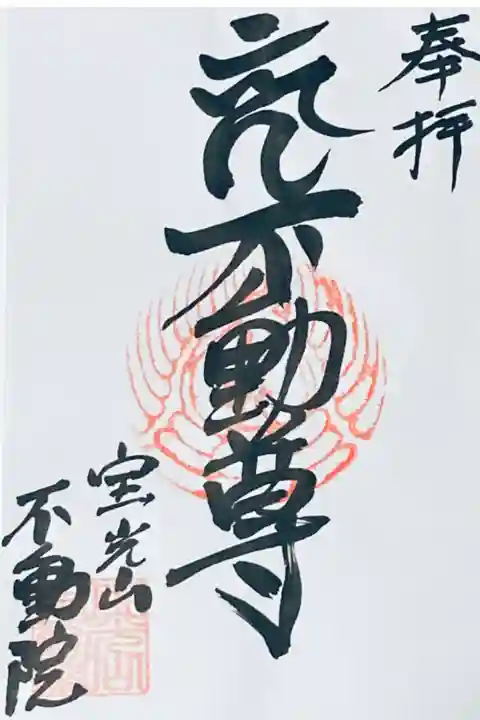 奉拝
不動尊
宝光山
不動院